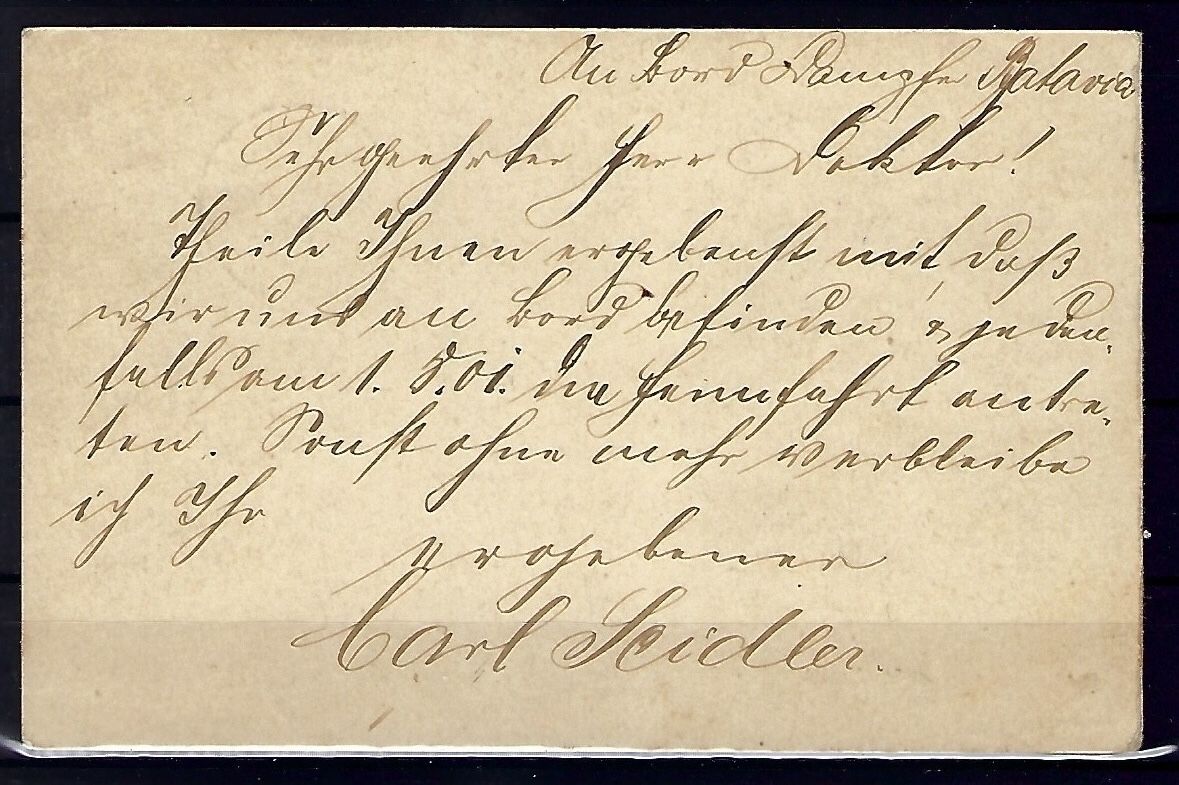 An Bord Dampfer Batavia
Sehrgeehrter Herr Doktor!
Theile Ihnen ergebenst mit, daß
wir uns an Bord befinden & jeden-
falls am 1. 5. 01. die Heimfahrt antre-
ten. Sonst ohne mehr verbleibe
ich Ihr
ergebener
Carl Seidler.